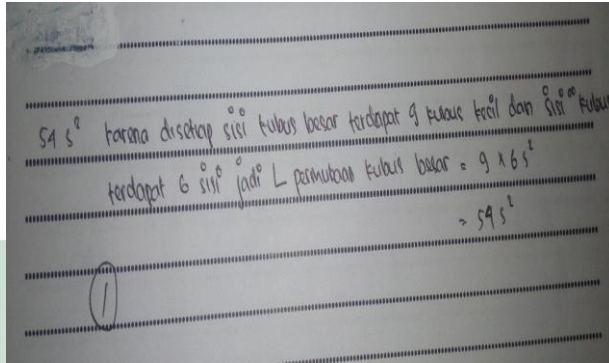 54 s² karena disetiap sisi kubus besar terdapat 9 kubus kecil dan sisi² kubus
terdapat 6 sisi jadi L permukaan kubus besar = 9 x 6 s²
= 54 s²
1